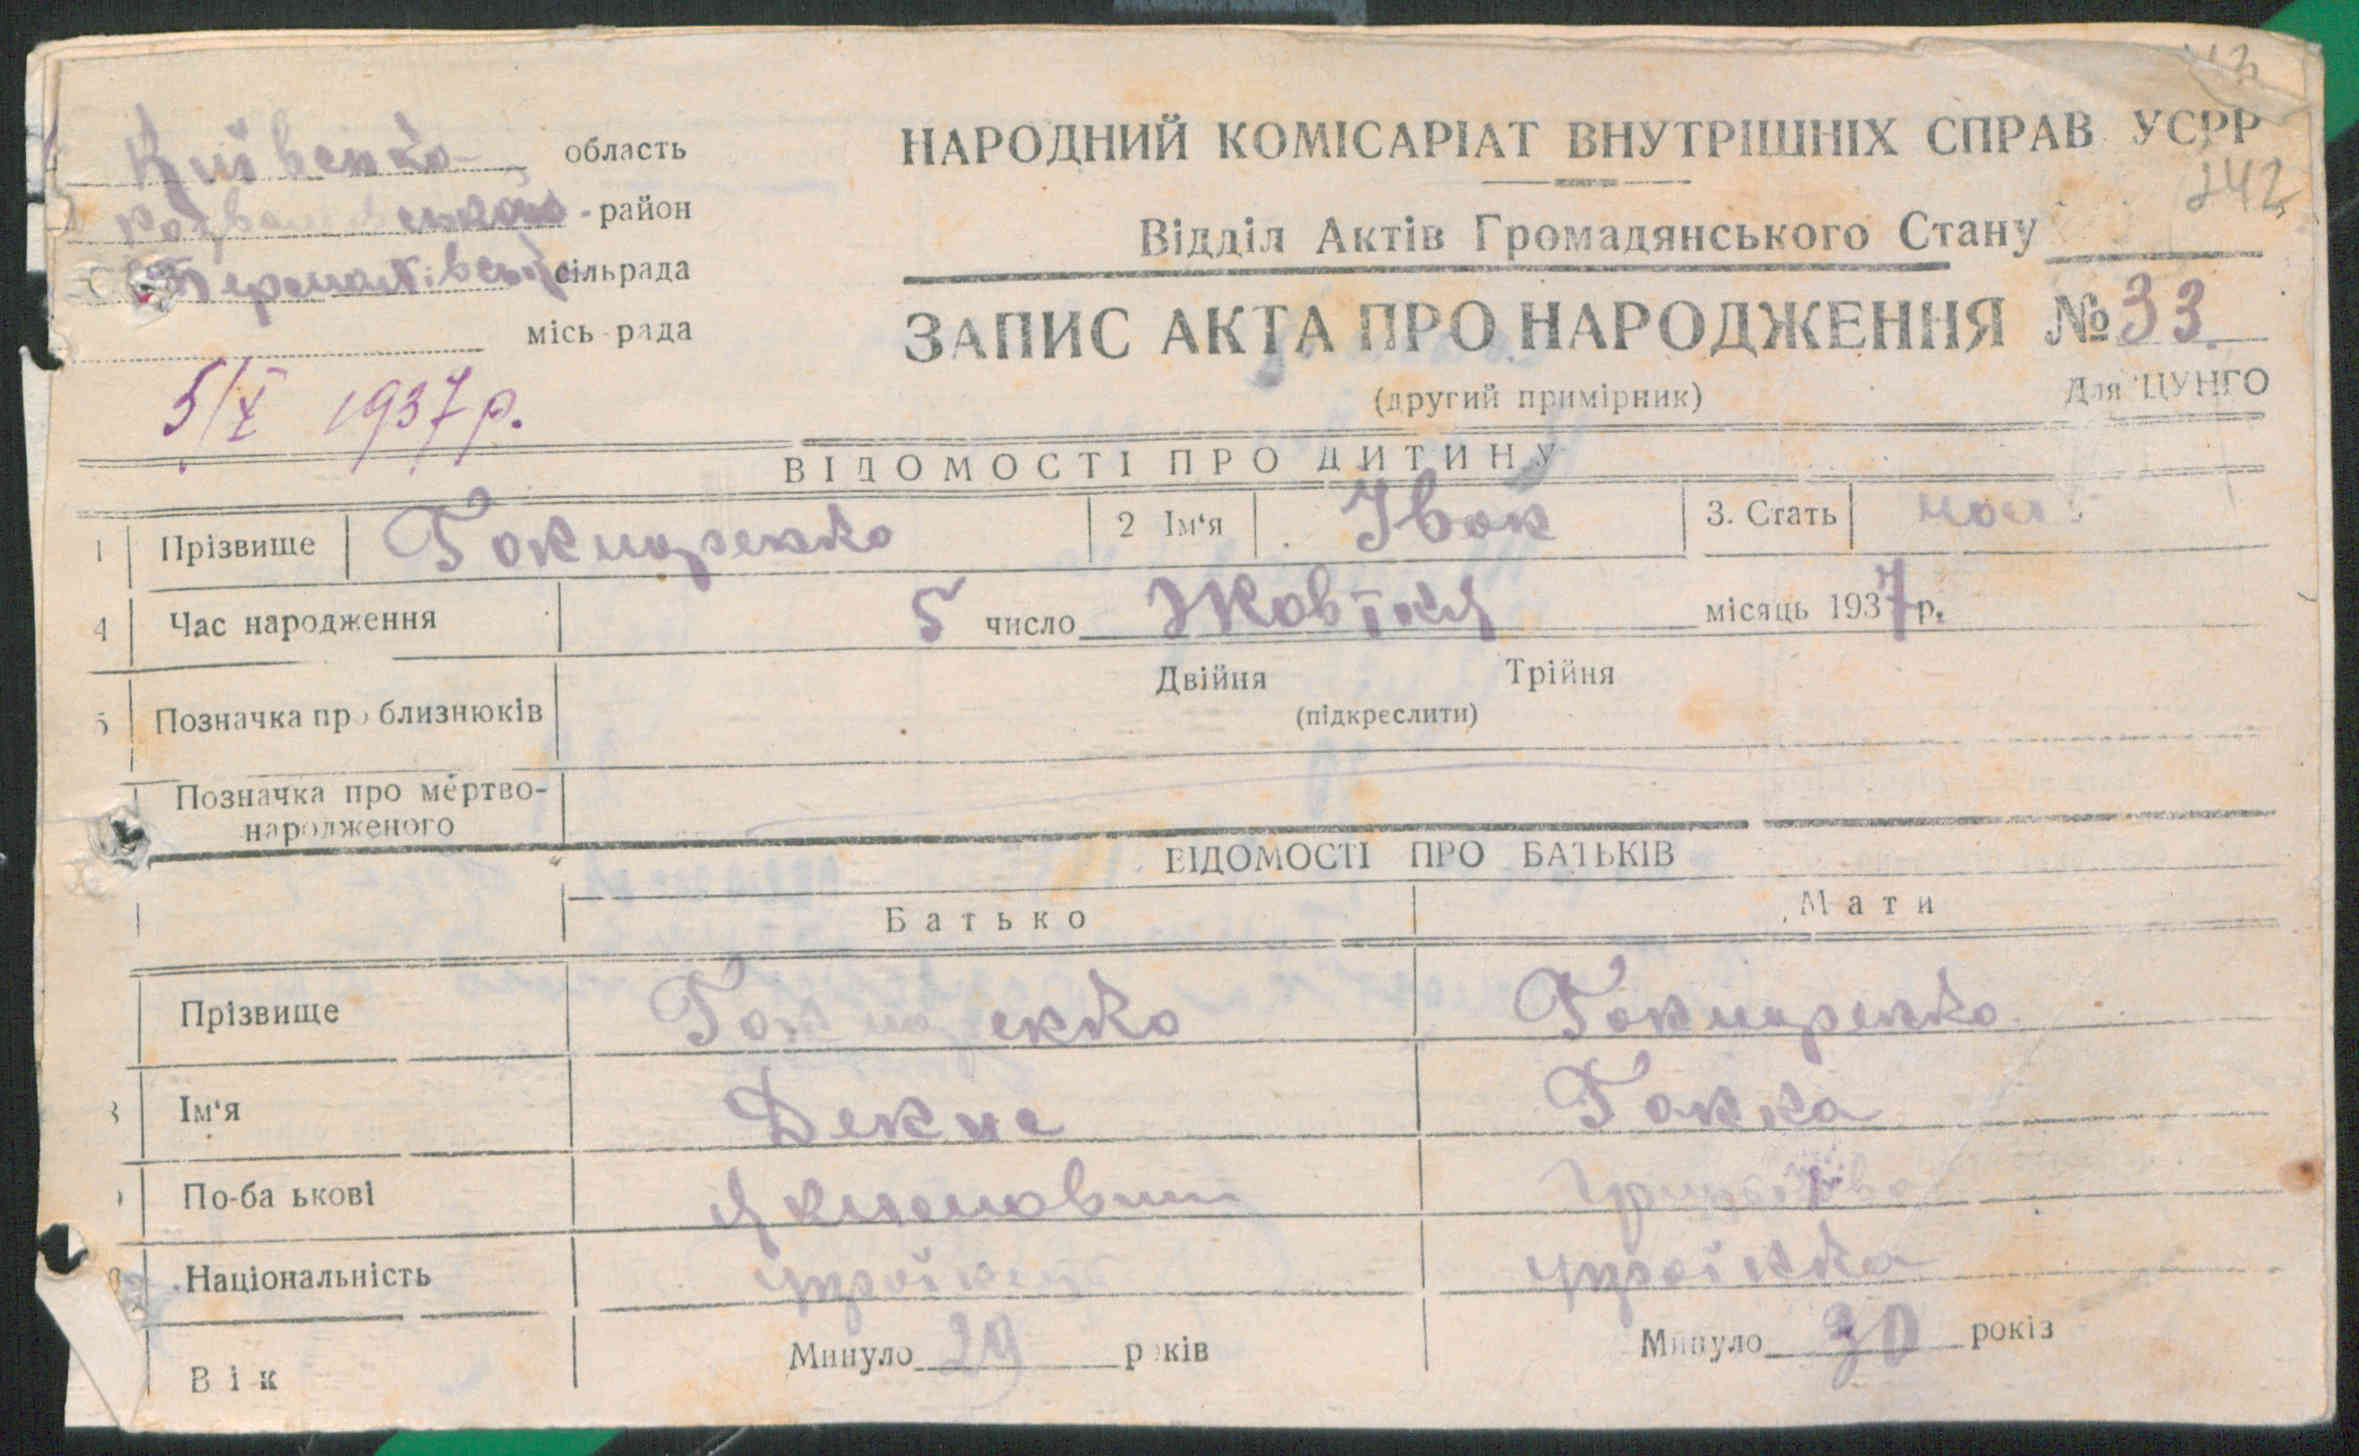 Київська область
район
сільрада
місь-рада
НАРОДНИЙ КОМІСАРІАТ ВНУТРІШНІХ СПРАВ УСРР
242
Відділ Актів Громадянського Стану
ЗАПИС АКТА ПРО НАРОДЖЕННЯ № 33
(другий примірник) Для ЦУНГО
5/X 1937 р.
ВІДОМОСТІ ПРО ДИТИНУ
1 Прізвище Гончаренко 2 Ім'я Іван 3. Стать чол
4 Час народження 5 число Жовтня місяць 1937 р.
5 Позначка про близнюків Двійня Трійня
(підкреслити)
Позначка про мертво-
народженого
ВІДОМОСТІ ПРО БАТЬКІВ
Батько Мати
Прізвище Гончаренко Гончаренко
Ім'я Ганна
По-ба ькові
Національність українець українка
Вік Минуло 29 років Минуло 30 років